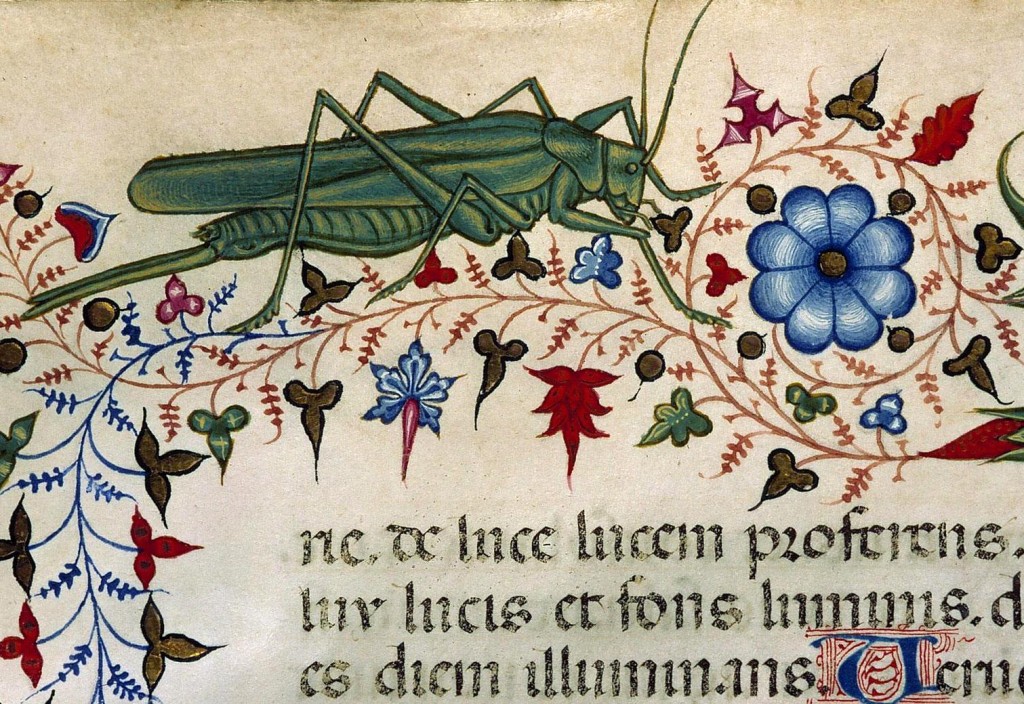 rie. de luce lucem proferens.
lux lucis et fons luminis. d
es diem illuminans. Ueru